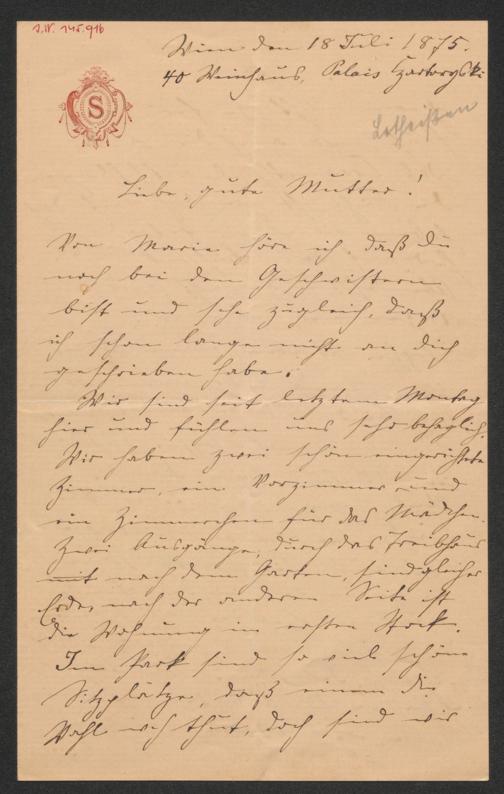 I.N. 145.916
Wien den 18 Juli 1875.
40 Weinhaus, Palais Czartoryski
S
Lotheißen
Liebe, gute Mutter!
Von Marie höre ich, daß Du
noch bei den Geschwistern
bist und sehe zugleich, daß
ich schon lange nicht an Dich
geschrieben habe.
Wir sind seit letztem Montag
hier und fühlen uns sehr behaglich.
Wir haben zwei schön eingerichtete
Zimmer, ein Vorzimmer und
ein Zimmerchen für das Mädchen.
Zwei Ausgänge, durch das Treibhaus
mit nach dem Garten, sind gleicher
Erde, nach der anderen Seite ist
die Wohnung im ersten Stock.
Im Park sind so viele schöne
Sitzplätze, daß einem die
Wahl weh thut, doch sind wir